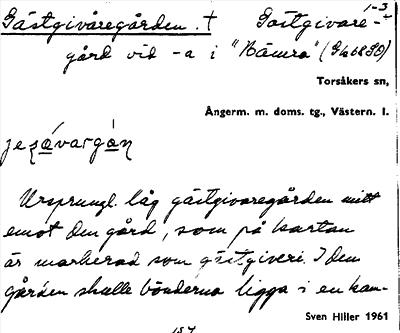 1-3
Gästgivaregården. † Gästgivare-
gård vid -a i "Hämra" (
Torsåkers sn,
Ångerm. m. doms. tg., Västern. l.
Ursprungl. låg gästgivaregården mitt
emot den gård, som på kartan
är markerad som gästgiveri. I den
gården skulle bönderna ligga i en kam-
Sven Hiller 1961